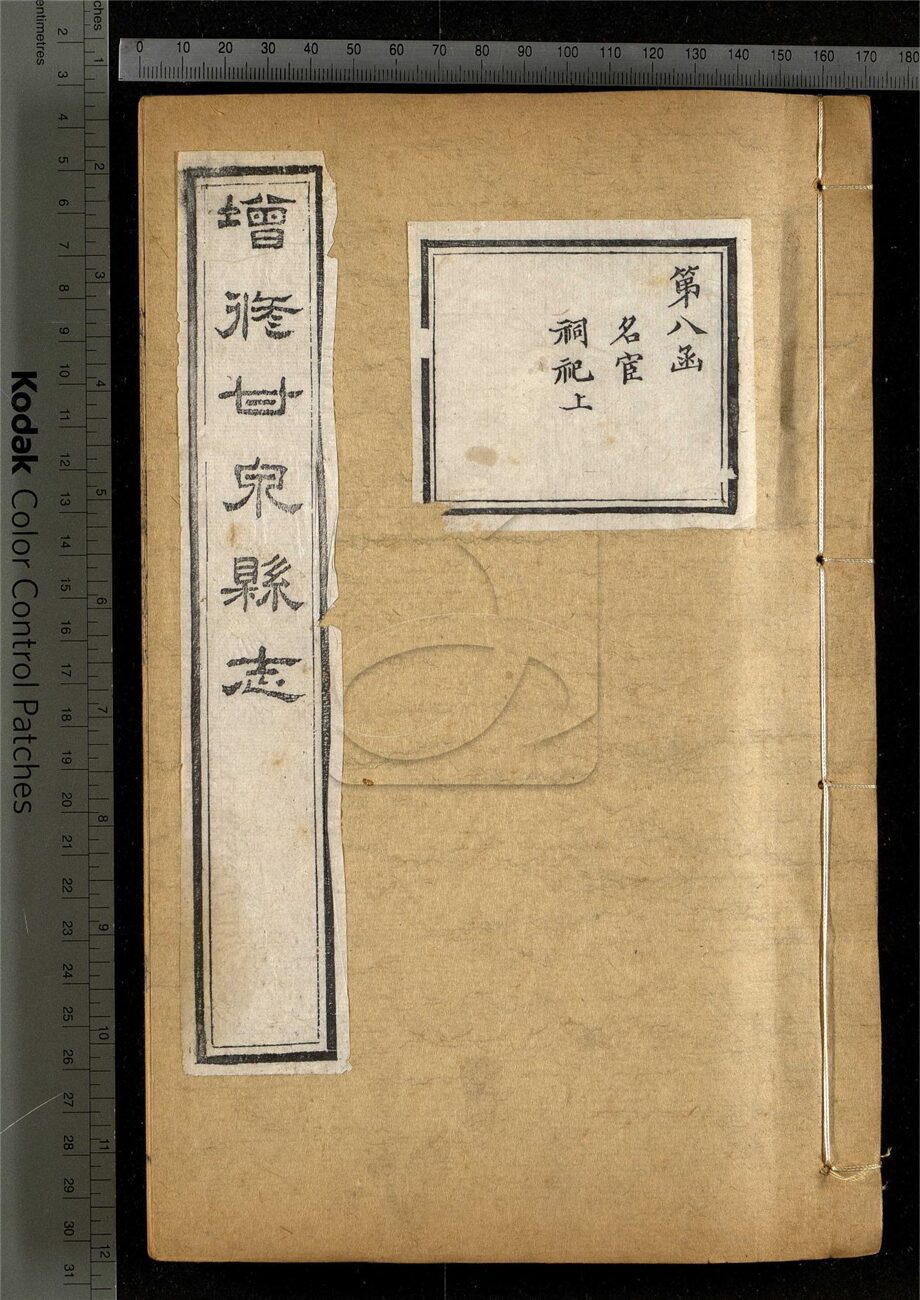 增修甘泉縣志
第八函
名宦
祠祀上
0 10 20 30 40 50 60 70 80 90 100 110 120 130 140 150 160 170 180
ches
1 2 3 4 5 6 7 8 9 10 11 12
entimetres
2 3 4 5 6 7 8 9 10 11 12 13 14 15 16 17 18 19 20 21 22 23 24 25 26 27 28 29 30 31
Kodak Color Control Patches